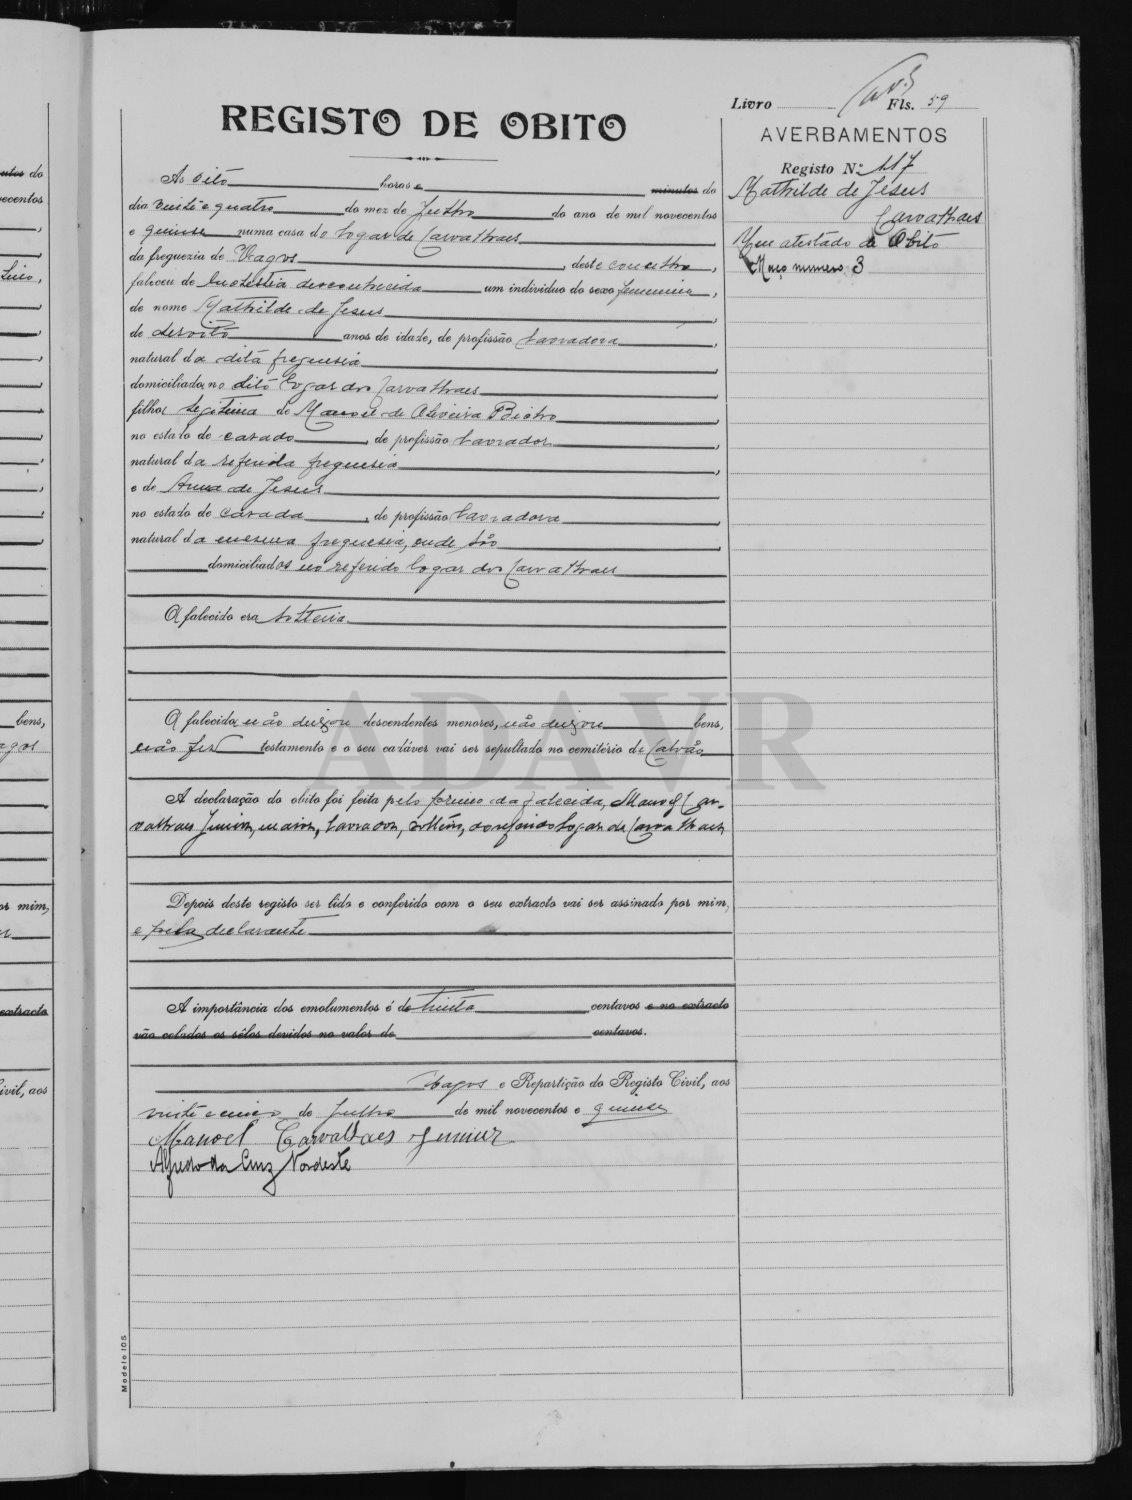 Livro Fls. 59
REGISTO DE OBITO
AVERBAMENTOS
Registo Nº 117
Mathilde de Jesus
Carvalhaes
Tem atestado de Obito
Maço numero 3
As oito horas e minutos do
dia vinte e quatro do mez de Julho do ano de mil novecentos
e quinse numa casa do logar de Carvalhaes
da freguezia de Vagos, deste concelho,
faleceu de molestia desconhecida um individuo do sexo femenino,
de nome Mathilde de Jesus,
de desoito anos de idade, de profissão lavradora,
natural da dita freguesia,
domiciliado no dito logar dos Carvalhaes,
filha legitima de Manoel de Oliveira Bicho,
no estado de casado, de profissão lavrador,
natural da referida freguesia,
e de Anna de Jesus
no estado de casada, de profissão lavradora,
natural da mesma freguesia, onde são,
domiciliados no referido logar dos Carvalhaes
A falecida era solteira
A falecida não deixou descendentes menores, não deixou bens,
não fez testamento e o seu cadáver vai ser sepultado no cemitério de Calvão
A declaração do obito foi feita pelo primo da falecida, Manoel Car-
valhaes Junior, maior, lavrador, solteiro, do referido logar de Carvalhaes
Depois deste registo ser lido e conferido com o seu extracto vai ser assinado por mim,
e pelo declarante
A importância dos emolumentos é de trinta centavos e no extracto
vão colados os sêlos devidos no valor de centavos.
Vagos e Repartição do Registo Civil, aos
vinte e cinco de Julho de mil novecentos e quinse
Manoel Carvalhaes Junior
Alfredo da Cruz Nordeste
Modelo 105
ADAVR